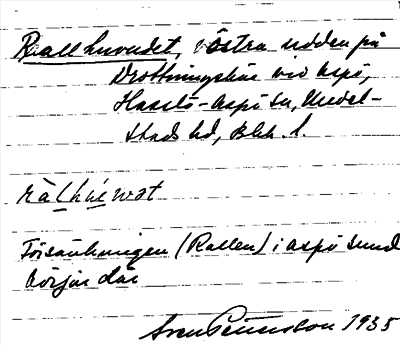 Rallhuvudet, västra udden på
Drottningskär vid Aspö,
Hasslö-Aspö sn, Medel-
stads hd, Blek. l.
Försänkningen (Rallen) i Aspö sund
börjar där
Sven Pettersson 1935